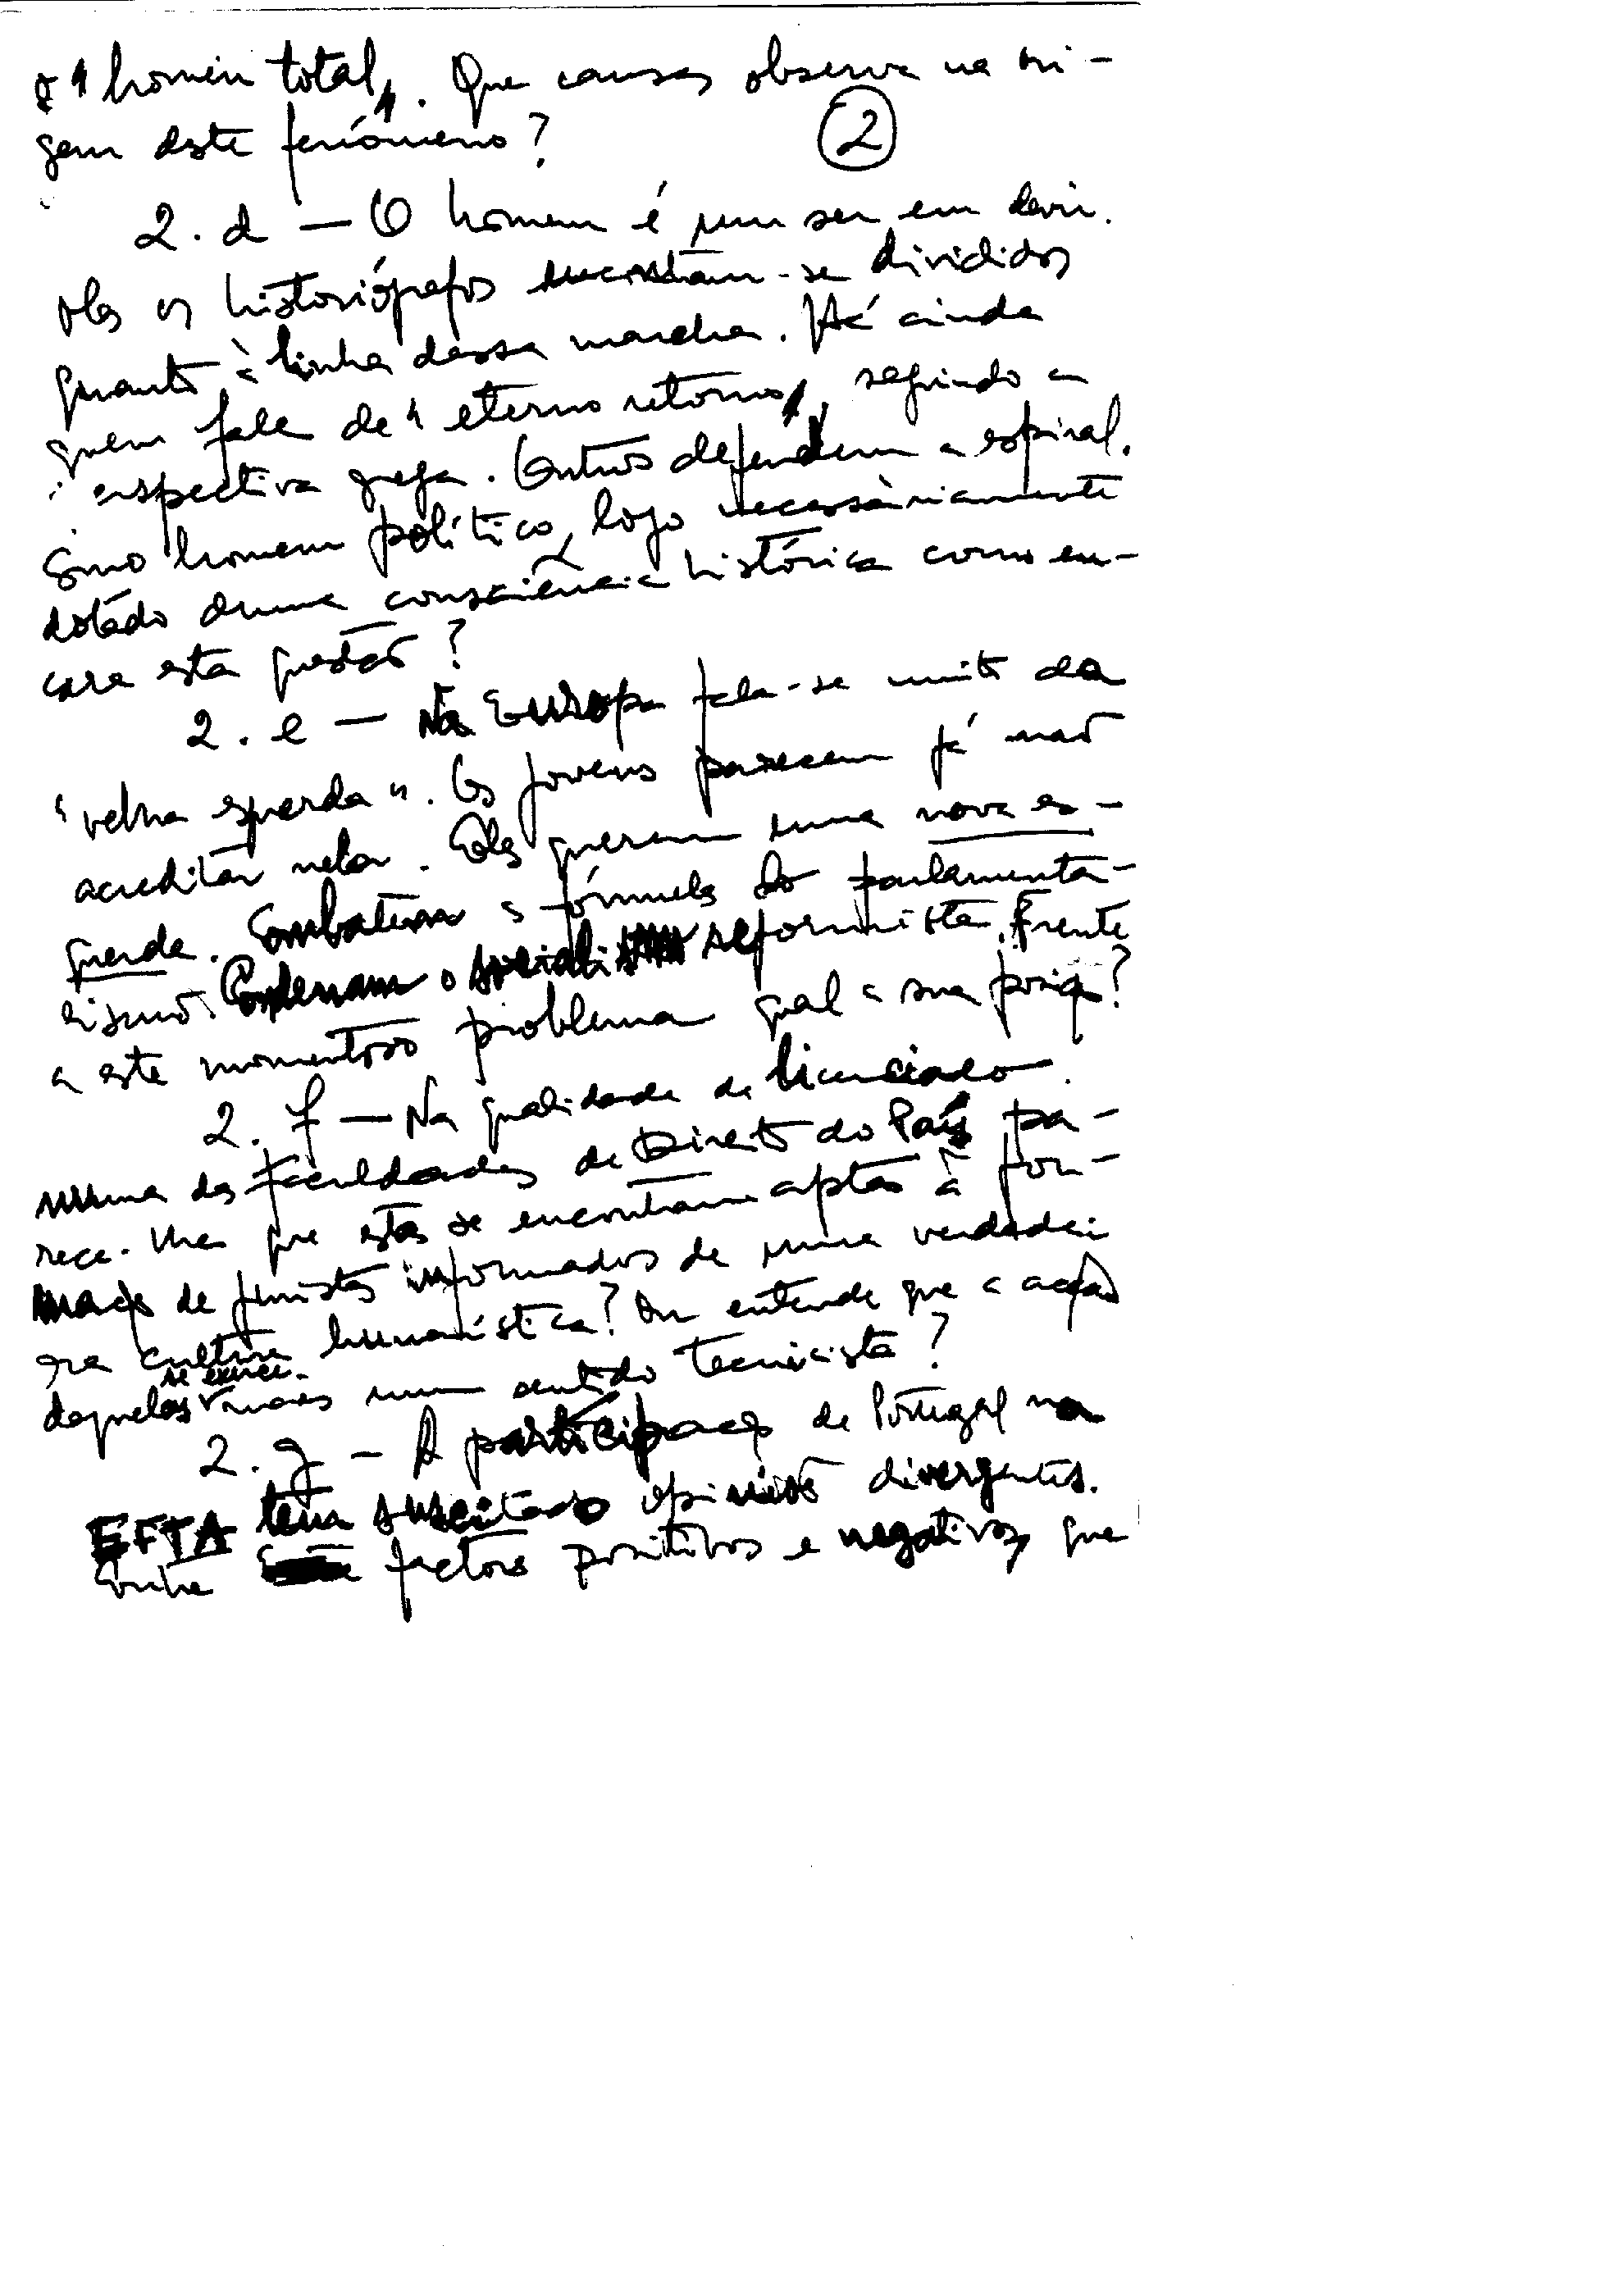 o "homem total". Que causas observa na ori-
gem deste fenómeno?
2
2. d — O homem é um ser em devir.
Mas os historiógrafos encontram-se divididos
quanto à linha dessa marcha. Há ainda
quem fale de "eterno retorno", seguindo a
perspectiva grega. Outros defendem a espiral.
Como homem político, logo necessàriamente
dotado duma consciência histórica como en-
cara esta questão?
2. e — Na Europa fala-se muito da
"velha esquerda". Os jovens parecem já não
acreditar nela. Eles querem uma nova es-
querda. Combatem a fórmula do parlamenta-
rismo. Condenam o socialismo reformista. Frente
a este momentoso problema qual a sua posição?
2. f — Na qualidade de licenciado
numa das Faculdades de Direito do País pa-
rece-lhe que estas se encontram aptas à for-
mação de juristas informados de uma verdadei
ra cultura humanística? Ou entende que a acção
se exerce
daquelas mais num sentido tecnicista?
2. g — A participação de Portugal na
EFTA tem suscitado opiniões divergentes.
Entre factores positivos e negativos, que